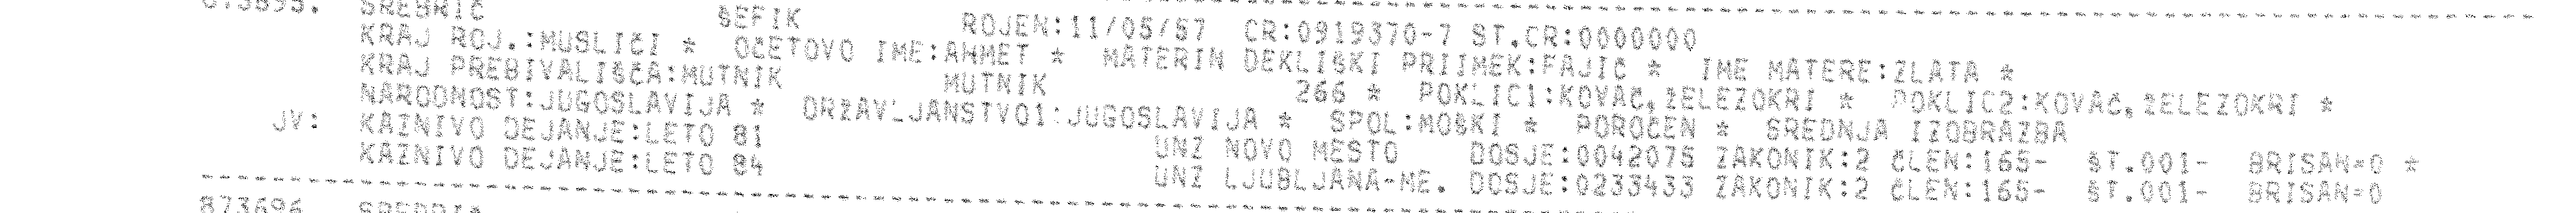 SREBRIĆ ŠEFIK ROJEN:11/05/57 CR:0919370-7 ST.CR:0000000
KRAJ ROJ.:MUSLIĆI * OČETOVO IME:AHMET * MATERIN DEKLIŠKI PRIIMEK:FAJIĆ * IME MATERE:ZLATA *
KRAJ PREBIVALIŠČA:MUTNIK MUTNIK 266 * POKLIC1:KOVAČ,ŽELEZOKRI * POKLIC2:KOVAČ,ŽELEZOKRI *
NARODNOST:JUGOSLAVIJA * DRŽAVLJANSTVO1:JUGOSLAVIJA * SPOL:MOŠKI * POROČEN * SREDNJA IZOBRAZBA
JV: KAZNIVO DEJANJE:LETO 81 UNZ NOVO MESTO DOSJE:0042075 ZAKONIK:2 ČLEN:165- ŠT.001- BRISAN=0 *
KAZNIVO DEJANJE:LETO 84 UNZ LJUBLJANA-ME. DOSJE:0233433 ZAKONIK:2 ČLEN:165- ŠT.001- BRISAN=0
873696